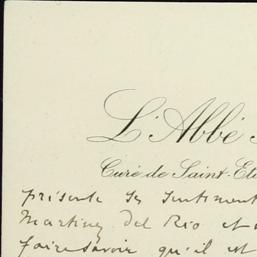 L'Abbé
Curé de Saint-El
présente ses sentiment
Martinez del Rio et
faire savoir qu'il est